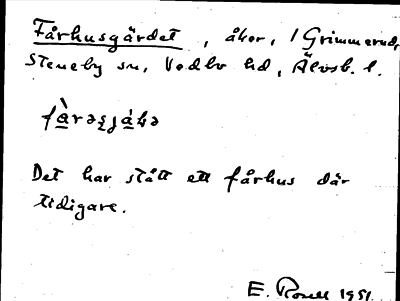 Fårhusgärdet, åker, / Grimmerud,
Steneby sn, Vedbo hd, Älvsb. l.
Det har stått ett fårhus där
tidigare.
E. Rosell 1951